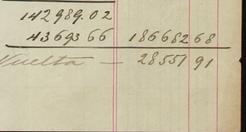 142989.02
43693 66 186682 68
Vuelta — 28551 91